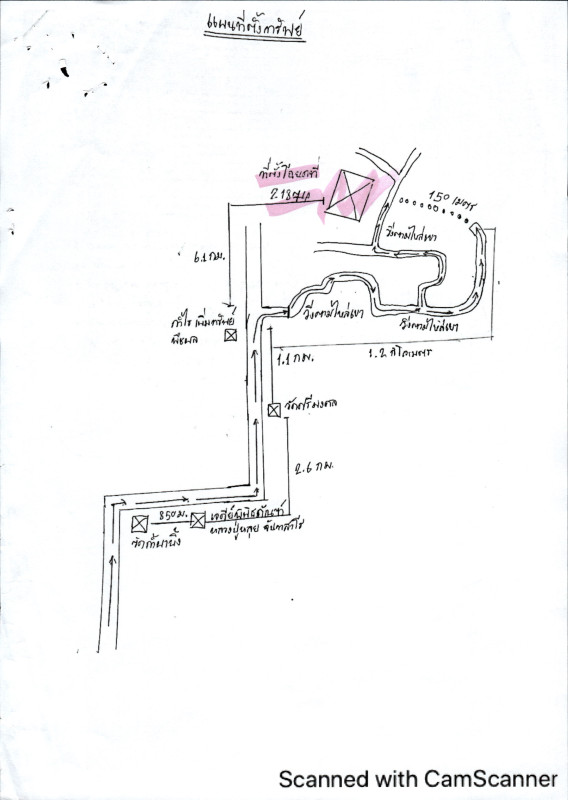 แผนที่ตั้งทรัพย์
ที่ตั้งโฉนดที่
150 เมตร
วิ่งตามไหล่เขา
6.1 กม.
กำไร เพิ่มทรัพย์
พืชผล
วิ่งตามไหล่เขา
วิ่งตามไหล่เขา
1.1 กม.
1.2 กิโลเมตร
วัดศรีมงคล
2.6 กม.
850 ม.
เจดีย์พิพิธภัณฑ์
หลวงปู่หลุย จันทสาโร
วัดถ้ำผาบิ้ง
Scanned with CamScanner